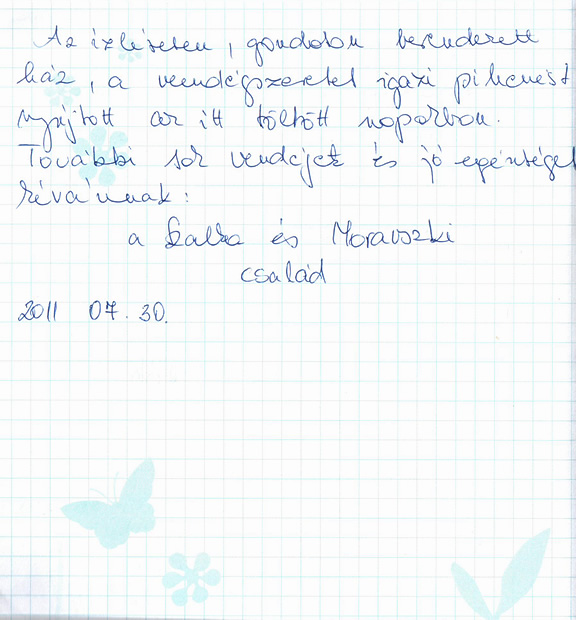 Az ízlésesen, gondosan berendezett
ház, a vendégszeretet igazi pihenést
nyújtott az itt töltött napokban.
További sok vendéget és jó egészséget
kívánnak:
a és Moravszki
család
2011 07.30.